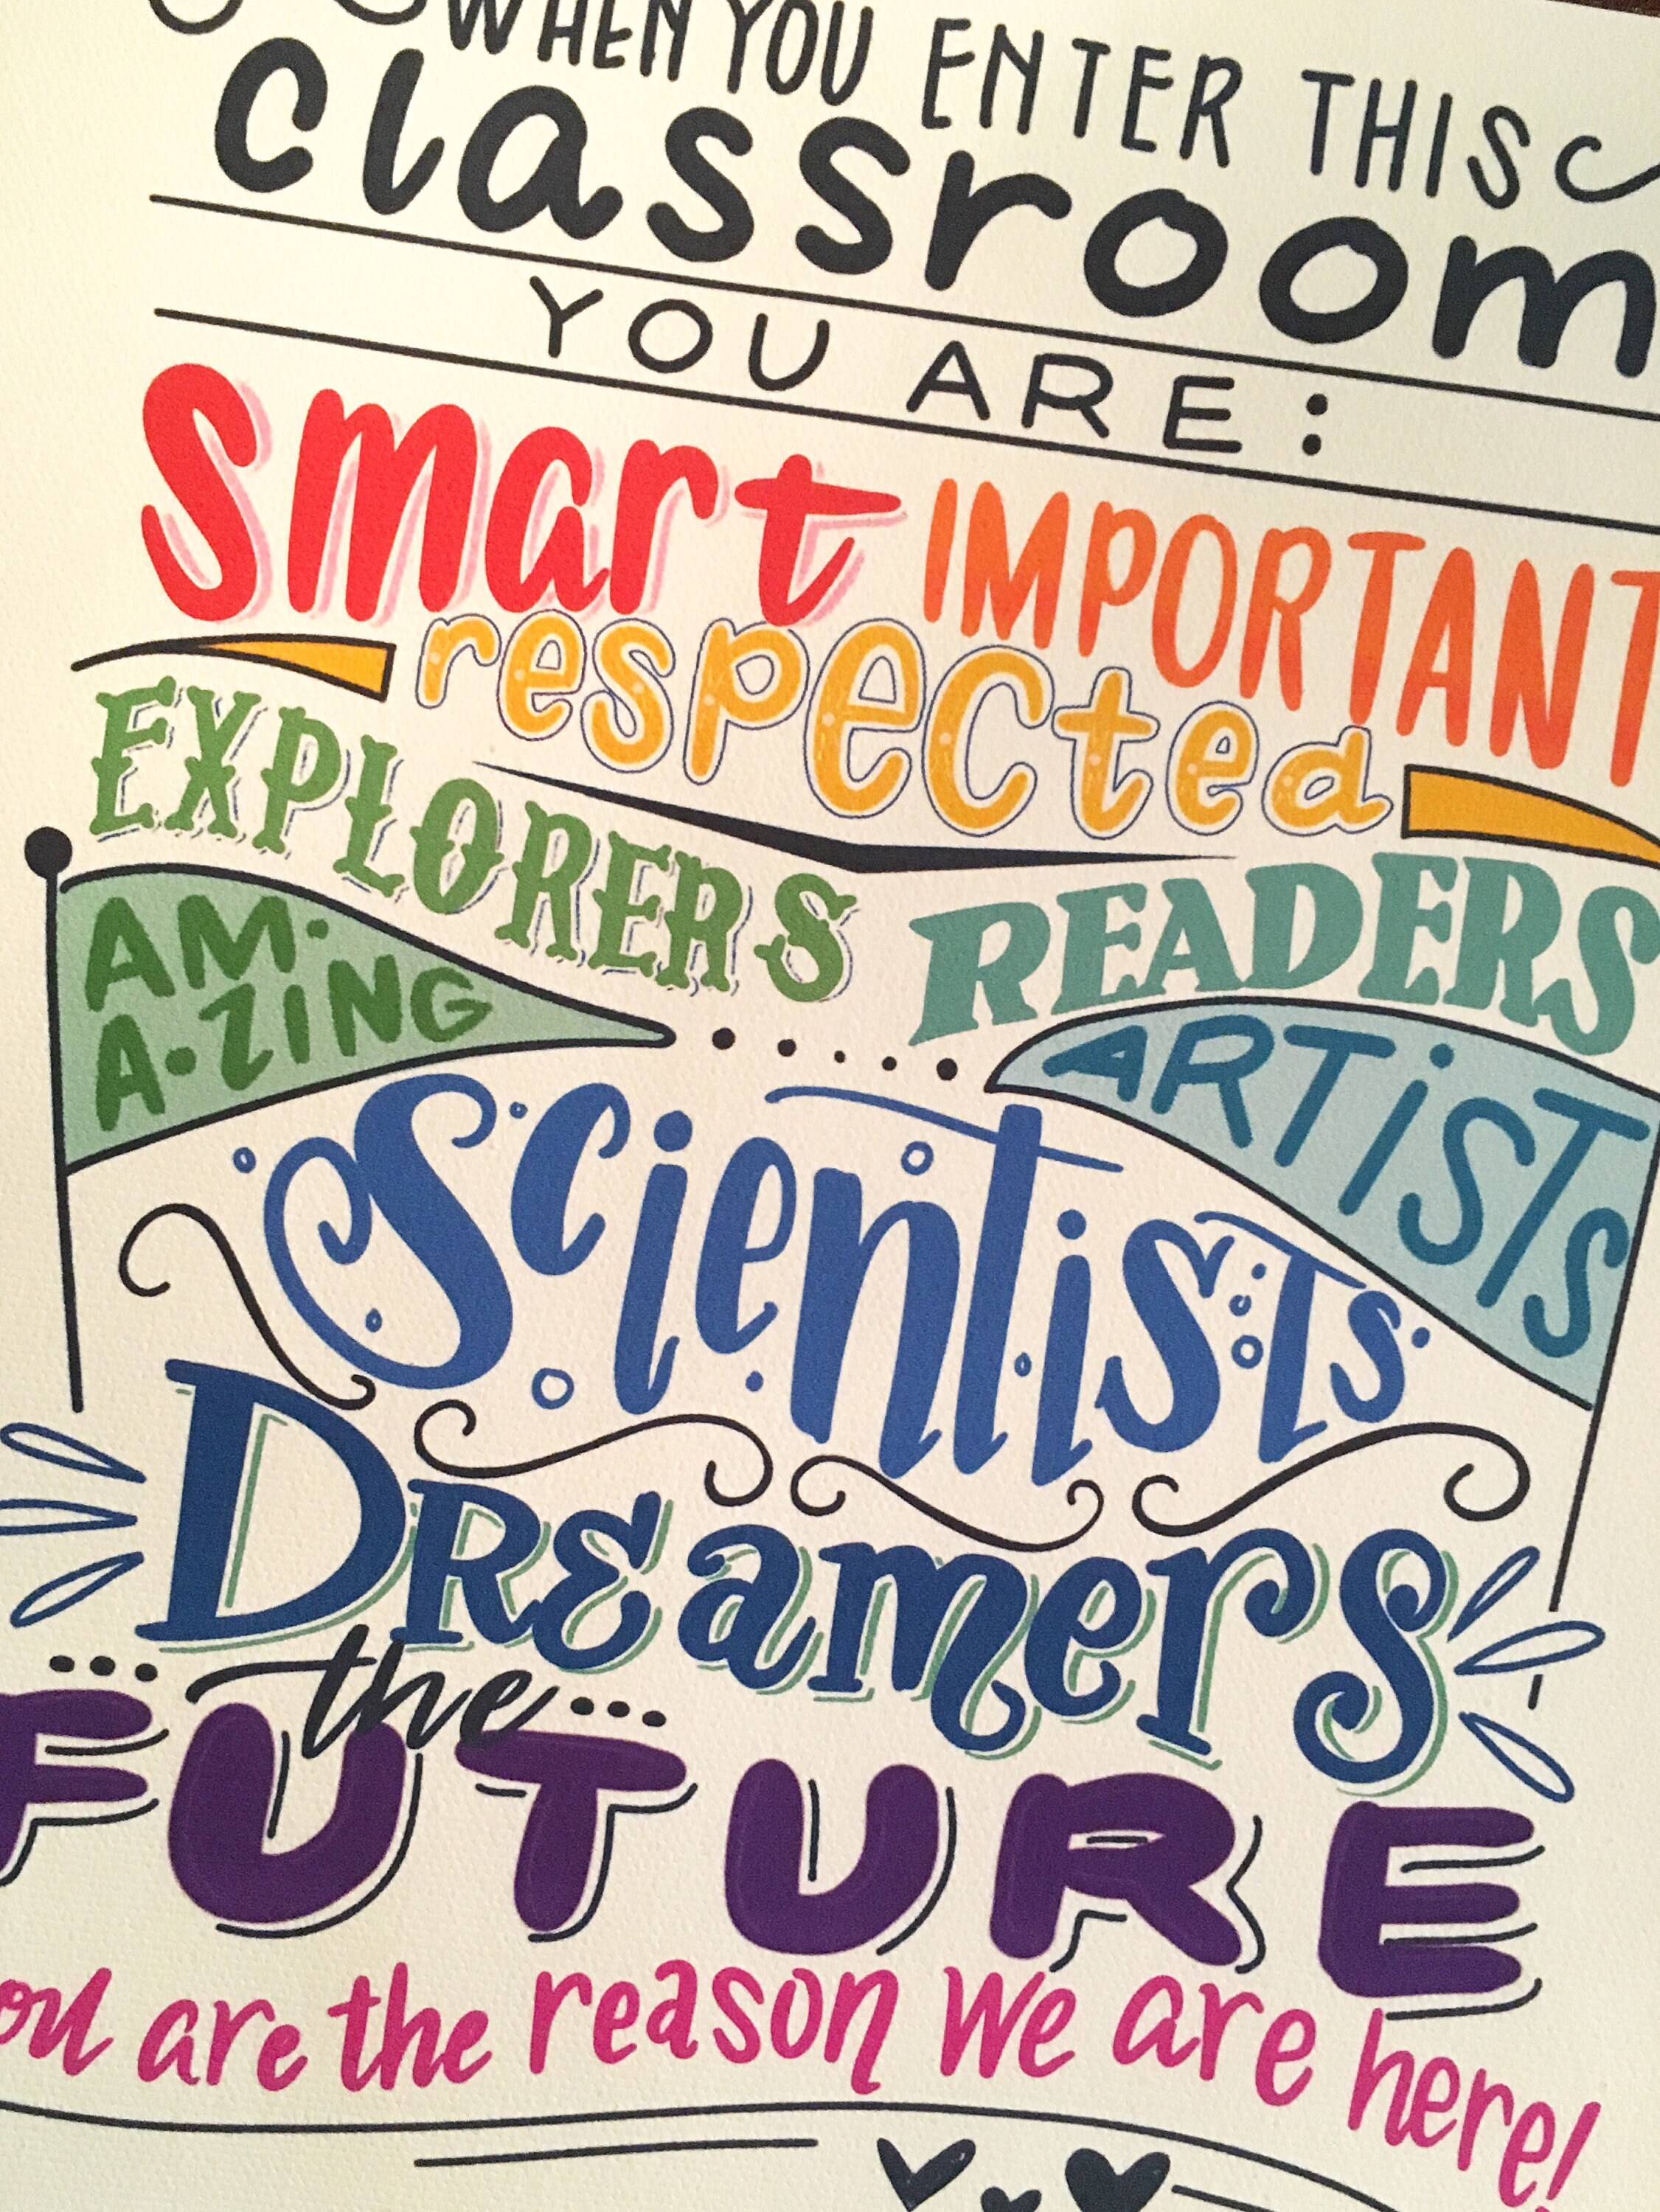 WHEN YOU ENTER THIS
classroom
YOU ARE:
smart IMPORTANT
respected
EXPLORERS READERS
AM·
A·ZING
ARTiSTS
Scientists
DREamerS
the
FUTURE
ou are the reason we are here!